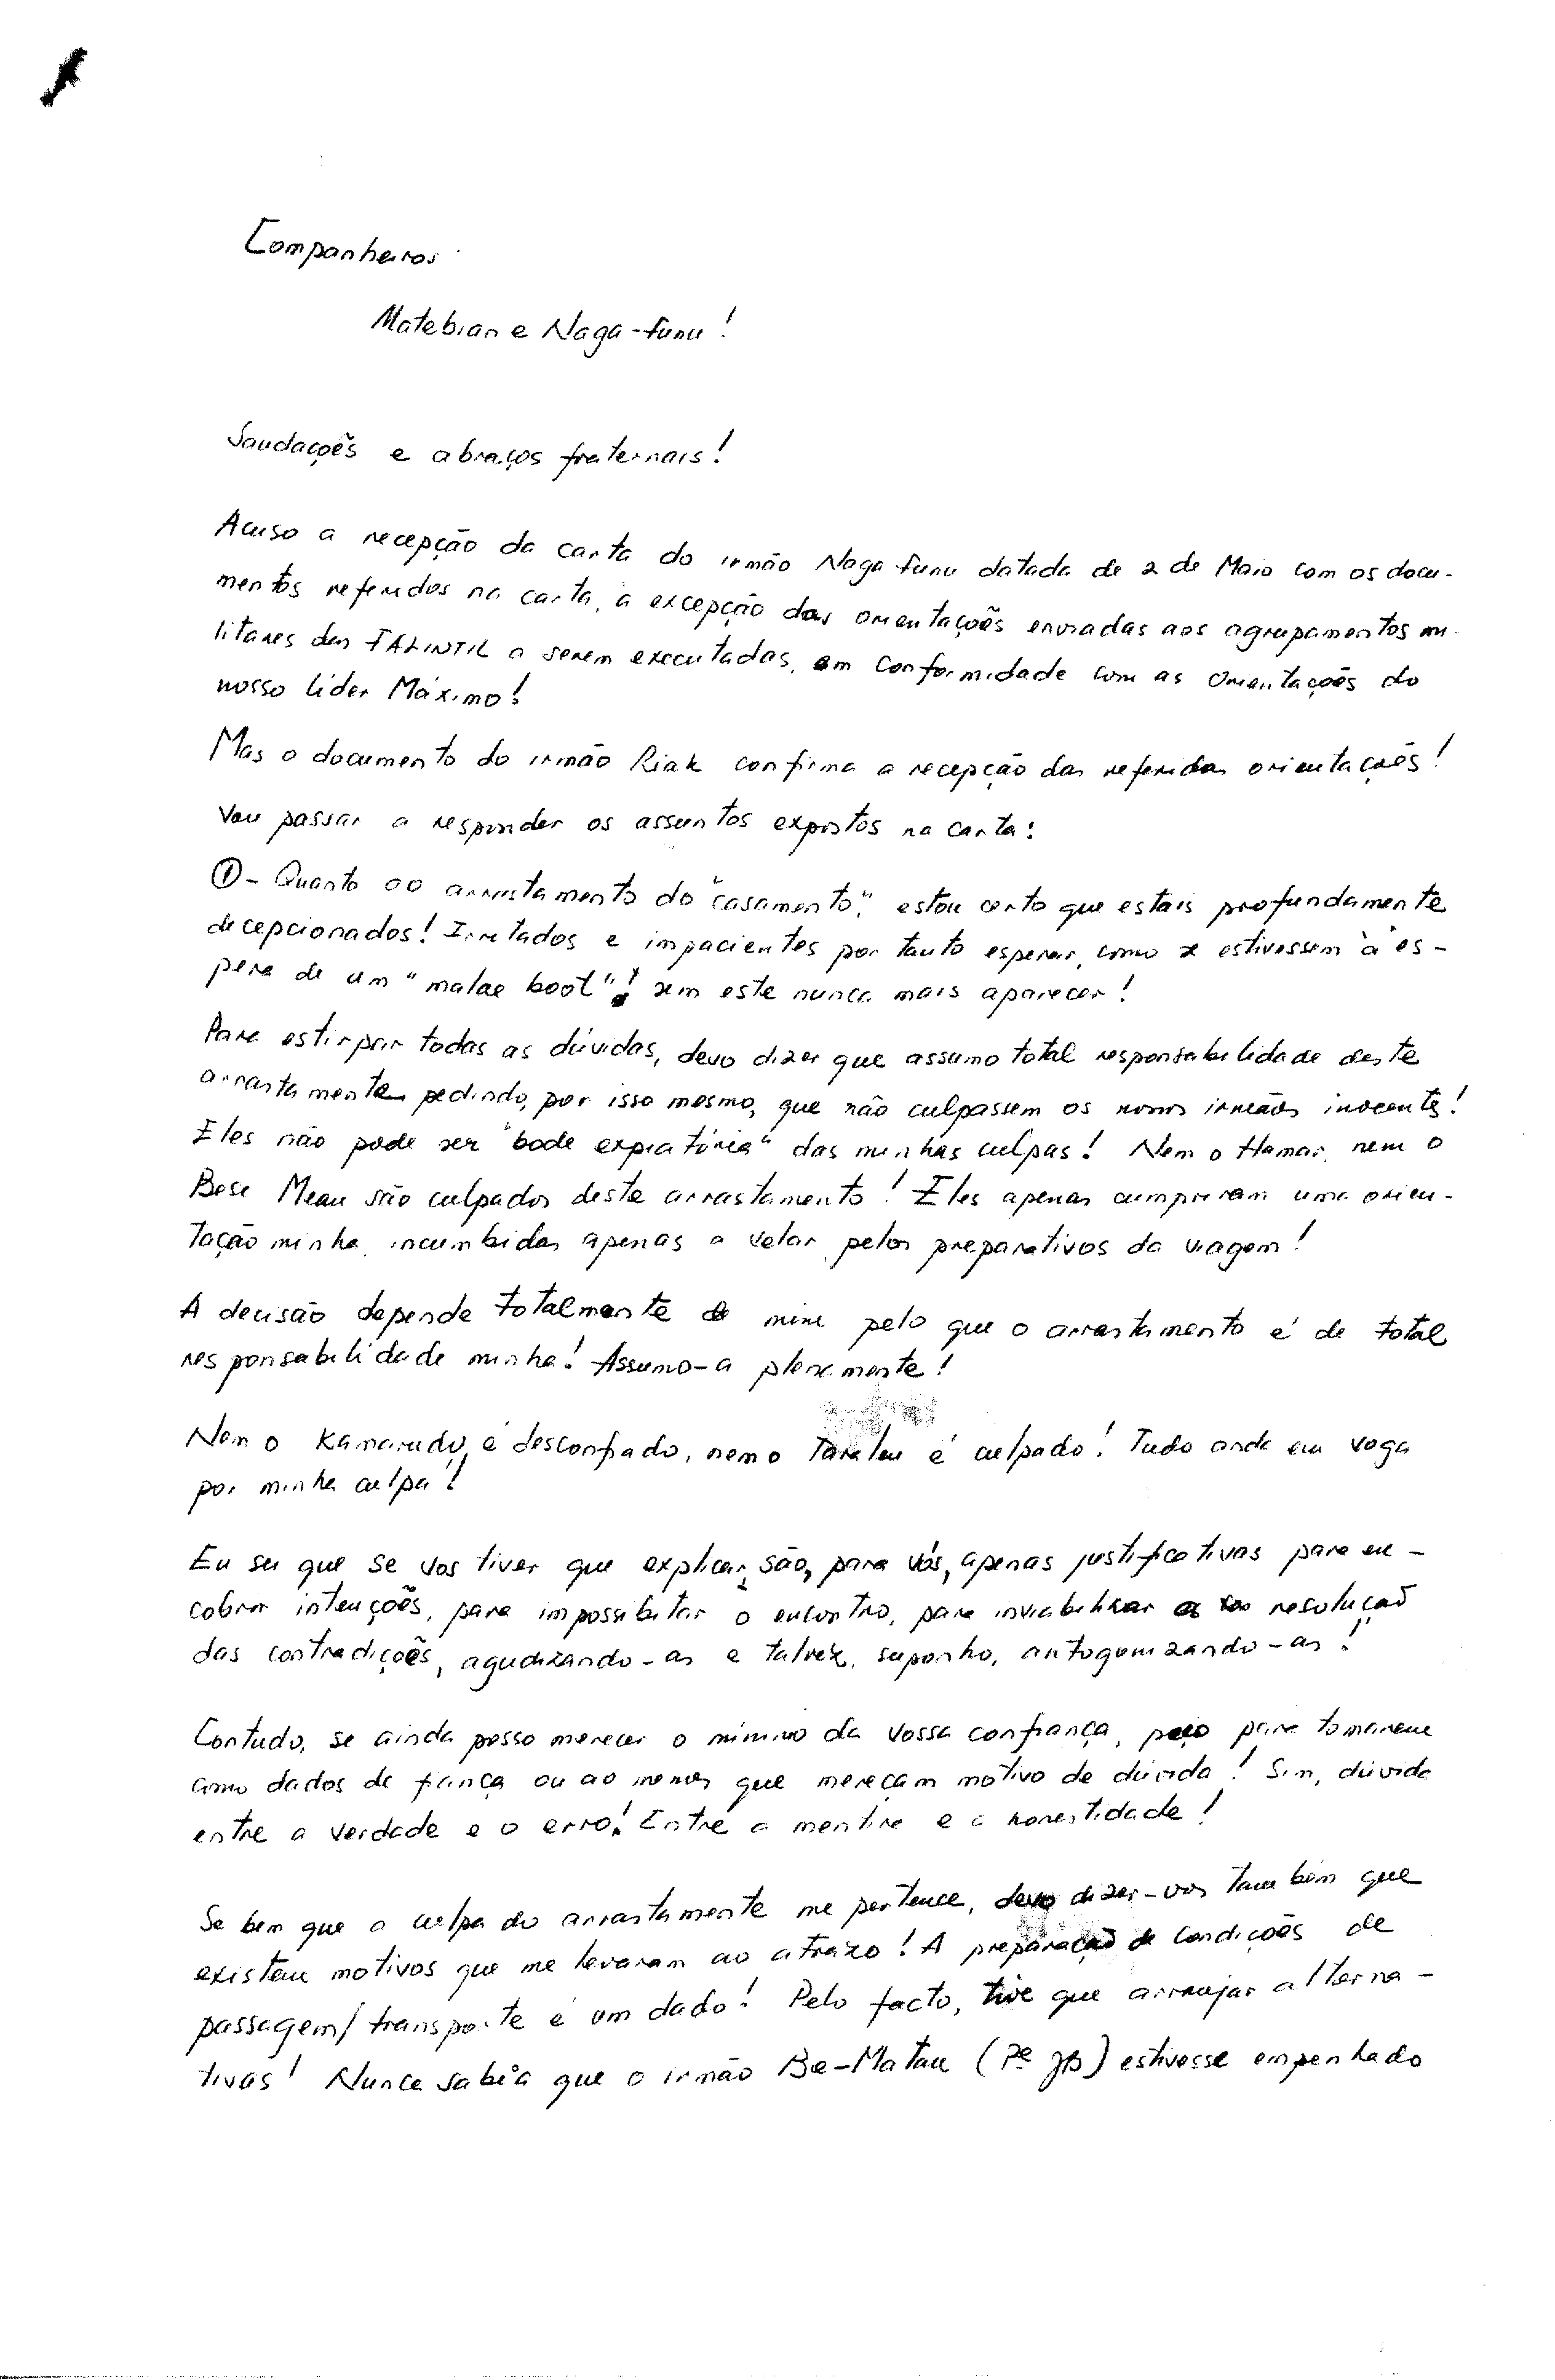 Companheiros
Matebian e Naga-funu!
Saudações e abraços fraternais!
Acuso a recepção da carta do irmão Naga funu datada de 2 de Maio com os docu-
mentos referidos na carta, à excepção das orientações enviadas aos agrupamentos mi-
litares das FALINTIL a serem executadas, em conformidade com as orientações do
nosso líder Máximo!
Mas o documento do irmão Riak confirma a recepção das referidas orientações!
Vou passar a responder os assuntos expostos na carta:
①- Quanto ao arrastamento do "casamento", estou certo que estais profundamente
decepcionados! Irritados e impacientes por tanto esperar, como se estivessem "à es-
pera de um "malae boot"! sem este nunca mais aparecer!
Para estirpar todas as dúvidas, devo dizer que assumo total responsabilidade deste
arrastamento pedindo, por isso mesmo, que não culpassem os nossos irmãos inocentes!
Eles não pode ser "bode expiatória" das minhas culpas! Nem o Hamar, nem o
Bese Meau são culpados deste arrastamento! Eles apenas cumpriram uma orien-
tação minha, incumbidos apenas a velar pelos preparativos da viagem!
A decisão depende totalmente de mim pelo que o arrastamento é de total
responsabilidade minha! Assumo-a plenamente!
Nem o Kamarudo é desconfiado, nem o é culpado! Tudo anda em voga
por minha culpa!
Eu sei que se vos tiver que explicar, são, para vós, apenas justificativas para en-
cobrir intenções, para impossibitar o encontro, para inviabilizar a resolução
das contradições, agudizando-as e talvez, suponho, antogonizando-as!
Contudo, se ainda posso merecer o mínimo da vossa confiança, peço para tomarem
como dados de fiança ou ao menos que mereçam motivo de dúvida! Sim, dúvida
entre a verdade e o erro! Entre a mentira e a honestidade!
Se bem que a culpa do arrastamente me pertence, devo dizer-vos também que
existem motivos que me levaram ao atrazo! A preparação de condições de
passagem/transporte é um dado! Pelo facto, tive que arranjar alterna-
tivas! Nunca sabia que o irmão Be-Matau (Pe ) estivesse empenhado